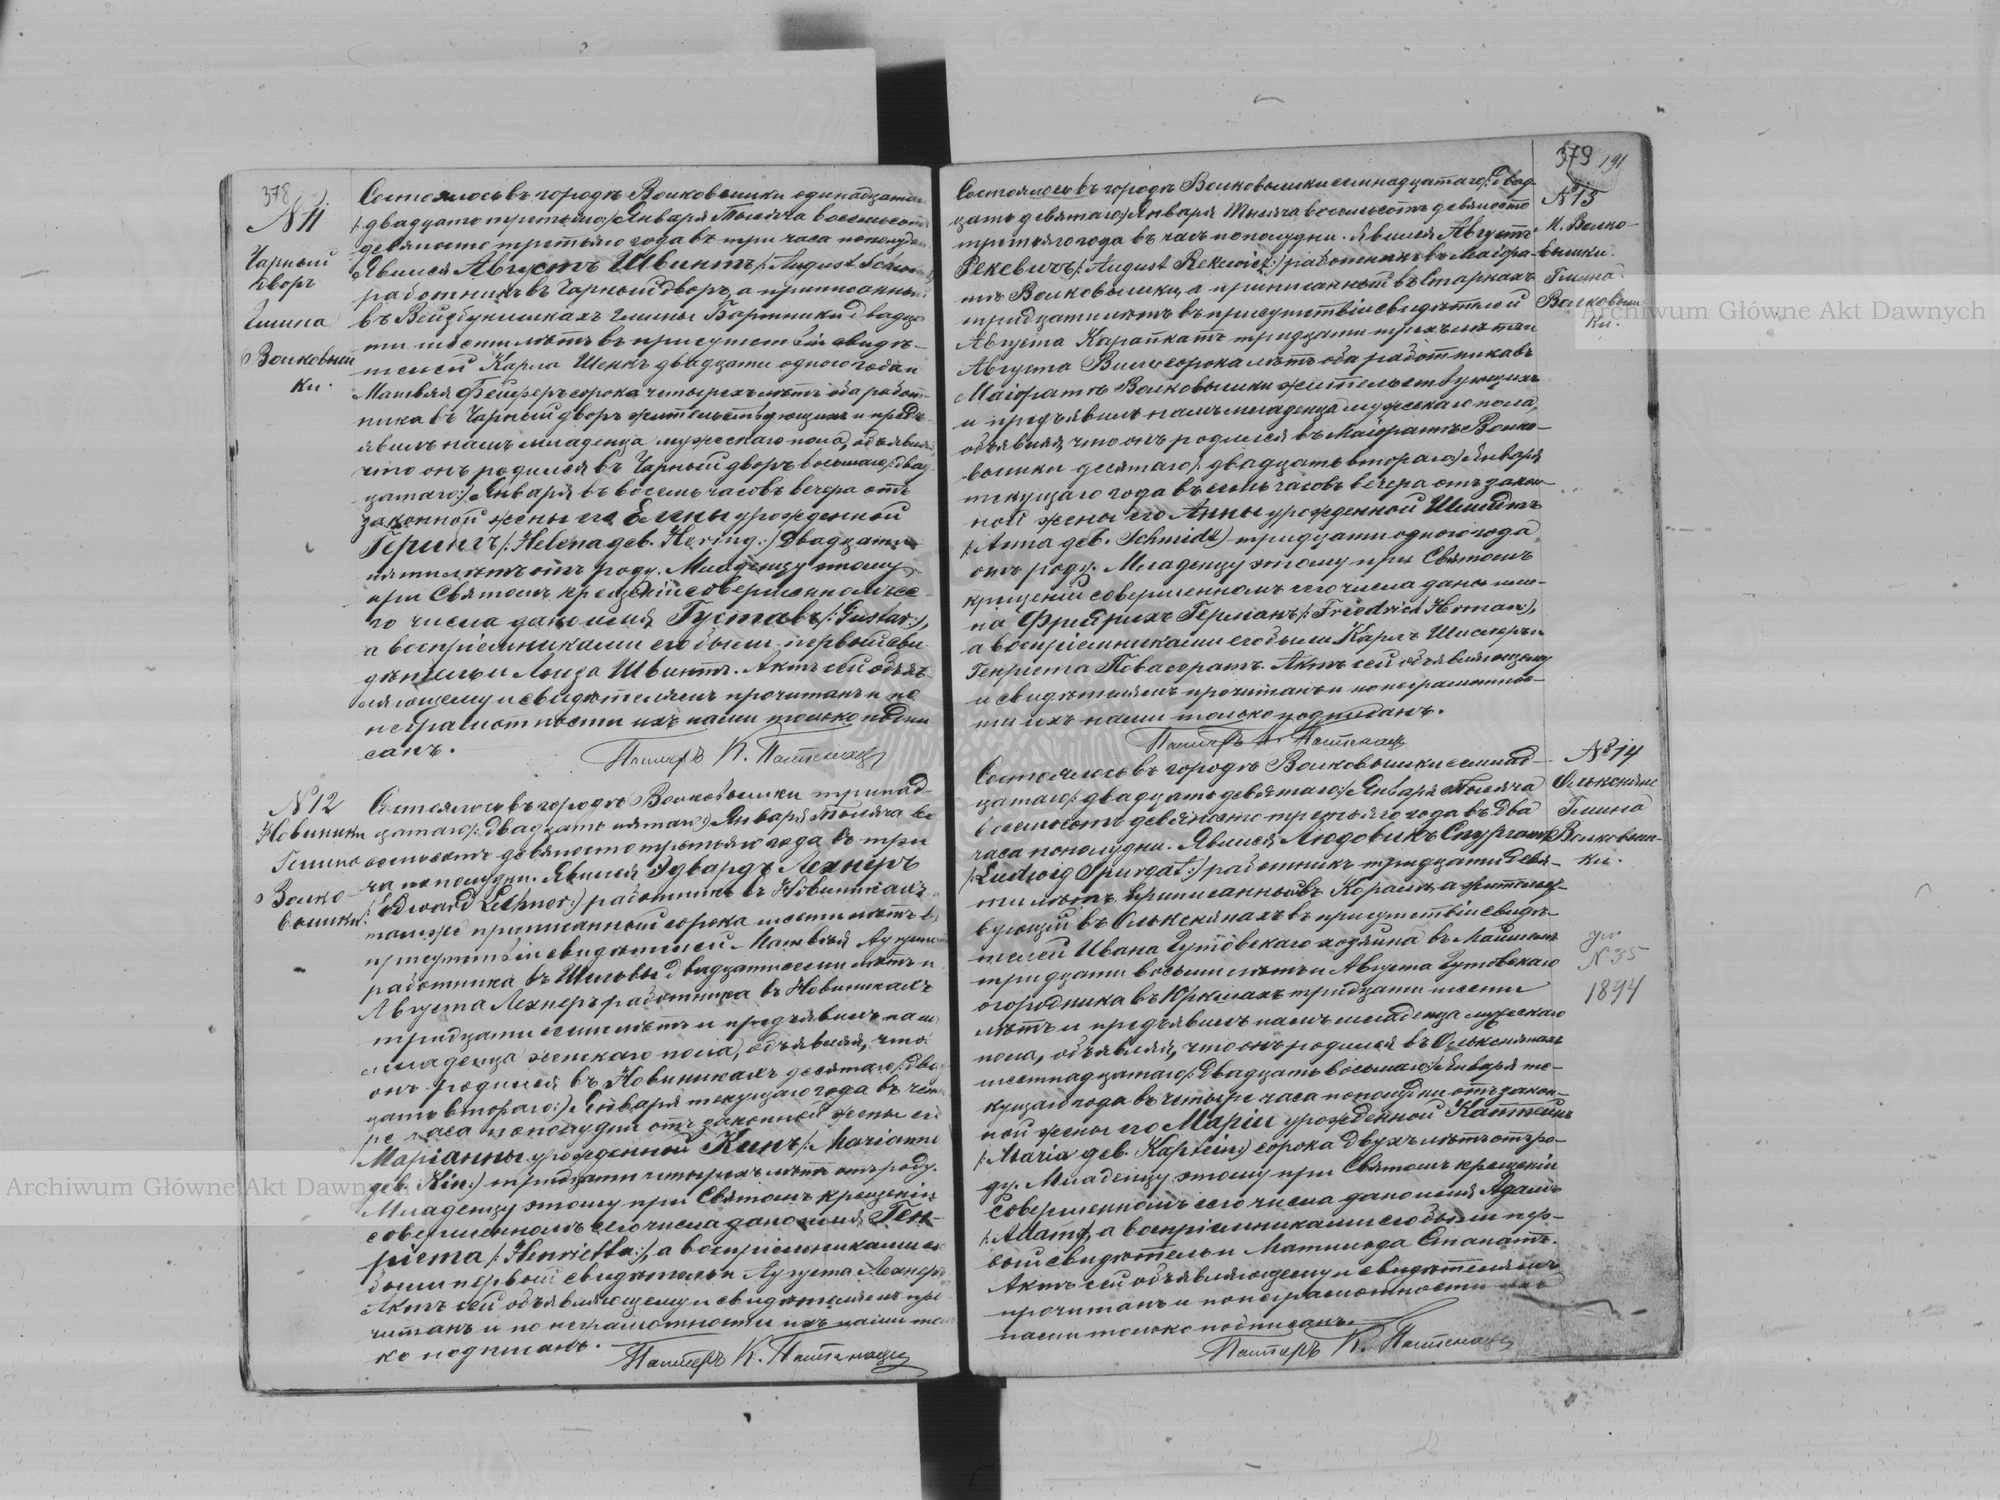 378
N 11
Чарный
дворъ
Гмина
Волковыш
ки.
Состоялось въ городѣ Волковышки одинадцатаго
/:двадцать третьяго:/ Января Тысяча восемьсотъ
девяносто третьяго года въ три часа пополудни.
Явился Августъ Швинтъ /:August
работникъ въ Чарный дворъ, а приписанный
въ гмины Бартники двадца
ти шести лѣтъ въ присутствіи свидѣ-
телей Карла Шенкъ двадцати одного года и
Матвѣя Фейферъ сорока четырехъ лѣтъ оба работ
ника въ Чарный дворъ жительствующихъ и предъ
явилъ намъ младенца мужескаго пола, объявляя,
что онъ родился въ Чарный дворъ восьмаго /:двад
цатаго:/ Января въ восемь часовъ вечера отъ
законной жены его Елены урожденной
Герингъ /:Helena geb. Hering:/ двадцати
пяти лѣтъ отъ роду. Младенцу этому
при Святомъ крещеніи совершенномъ се-
го числа дано имя Густавъ /:Gustav:/,
а воспріемниками его были первый сви
дѣтель и Луиза Швинтъ. Актъ сей объяв-
ляющему и свидѣтелямъ прочитанъ и по
неграмотности ихъ нами только подпи
санъ.
Пасторъ К.
N 12
Новиники
Гмина
Волко
вышки
Состоялось въ городѣ Волковышки тринад-
цатаго /:двадцать пятаго:/ Января Тысяча во
семьсотъ девяносто третьяго года въ три
часа пополудни. Явился Эдвардъ Лехнеръ
/:Edward Lechner:/ работникъ въ Новиникахъ
тамже приписанный сорока шести лѣтъ въ
присутствіи свидѣтелей Матвѣя
работника въ двадцати семи лѣтъ и
Августа Лехнеръ работника въ Новиникахъ
тридцати семи лѣтъ и предъявилъ намъ
младенца женскаго пола, объявляя, что
онъ родился въ Новиникахъ десятаго /:двад
цать втораго:/ Января текущаго года въ четы
ре часа пополудни отъ законной жены его
Маріанны урожденной Кинъ /:Marianna
geb. Kin:/ тридцати четырехъ лѣтъ отъ роду.
Младенцу этому при Святомъ крещеніи
совершенномъ сего числа дано имя Ген-
ріета /:Henrietta:/, а воспріемниками его
были первый свидѣтель и Августа Лехнеръ
Актъ сей объявляющему и свидѣтелямъ про
читанъ и по неграмотности ихъ нами толь
ко подписанъ.
Пасторъ К.
379 191
N 13
М. Волко-
вышки.
Гмина
Волковыш
ки.
Состоялось въ городѣ Волковышки семнадцатаго /:двад-
цать девятаго:/ Января Тысяча восемьсотъ девяносто
третьяго года въ часъ пополудни. Явился Августъ
Рекевичъ /:August Rekewicz:/ работникъ въ Маіора-
тѣ Волковышки, а приписанный въ
тридцати лѣтъ въ присутствіи свидѣтелей
Августа тридцати трехъ лѣтъ и
Августа сорока лѣтъ оба работника въ
Маіоратѣ Волковышки жительствующихъ
и предъявилъ намъ младенца мужескаго пола,
объявляя, что онъ родился въ Маіоратѣ Волко-
вышки десятаго /:двадцать втораго:/ Января
текущаго года въ семь часовъ вечера отъ закон-
ной жены его Анны урожденной Шмидтъ
/:Anna geb. Schmidt:/ тридцати одного года
отъ роду. Младенцу этому при Святомъ
крещеніи совершенномъ сего числа даны име-
на Фридрихъ Германъ /:Friedrich Herman:/,
а воспріемниками его были Карлъ и
Генріета Актъ сей объявляющему
и свидѣтелямъ прочитанъ и по неграмотнос-
ти ихъ нами только подписанъ.
Пасторъ К.
N 14
Гмина
Волковыш-
ки.
Состоялось въ городѣ Волковышки семнад-
цатаго /:двадцать девятаго:/ Января Тысяча
восемьсотъ девяносто третьяго года въ два
часа пополудни. Явился Людовикъ Спургатъ
/:Ludwig Spurgat:/ работникъ тридцати девя-
ти лѣтъ приписанный въ а жительст-
вующій въ въ присутствіи свидѣ-
телей Ивана Гутовскаго хозяина въ
тридцати восьми лѣтъ и Августа Гутовскаго
огородника въ тридцати шести
лѣтъ и предъявилъ намъ младенца мужескаго
пола, объявляя, что онъ родился въ
шестнадцатаго /:двадцать восьмаго:/ Января те-
кущаго года въ четыре часа пополудни отъ закон-
ной жены его Маріи урожденной Каптейнъ
/:Maria geb. Kaptein:/ сорока двухъ лѣтъ отъ ро-
ду. Младенцу этому при Святомъ крещеніи
совершенномъ сего числа дано имя Адамъ
/:Adam:/, а воспріемниками его были пер-
вый свидѣтель и Матильда
Актъ сей объявляющему и свидѣтелямъ
прочитанъ и по неграмотности ихъ
нами только подписанъ.
Пасторъ К.
ум
N 35
1894
Archiwum Główne Akt Dawnych
Archiwum Główne Akt Dawnych